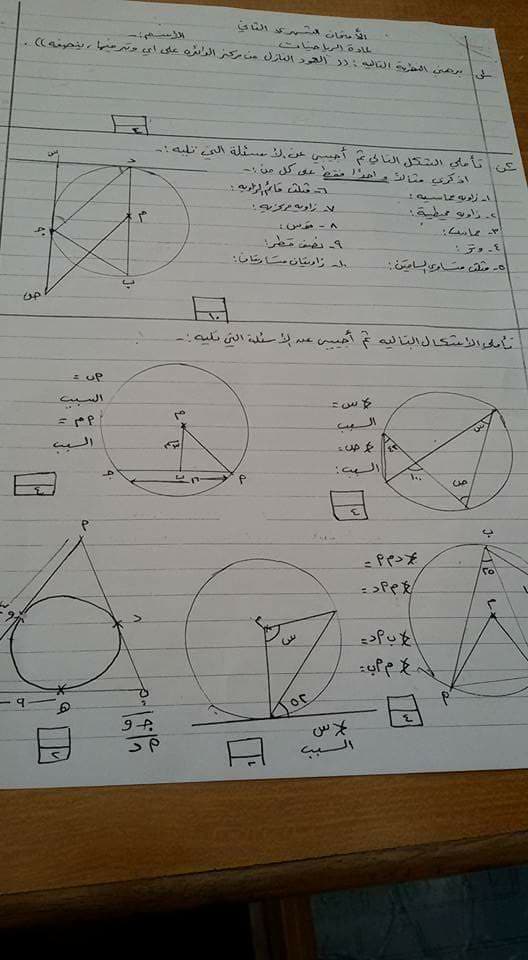 الأمتحان الشهري الثاني
لمادة الرياضيات
الاسم :-
برهني النظرية التالية : (( العمود النازل من مركز الدائرة على اي وتر فيها ، ينصفه )) .
٤
تأملي الشكل التالي ثم أجيبي عن الأسئلة التي تليه :-
اذكري مثالاً واحدًا فقط على كل من :-
١- زاوية مماسية :
٦- مثلث قائم الزاوية :
٢- زاوية محيطية :
٧- زاوية مركزية :
٣- مماس :
٨- قوس :
٤- وتر :
٩- نصف قطر :
٥- مثلث متساوي الساقين :
١٠- زاويتان متساويتان :
س
د
م
جـ
ب
ص
١٠
تأملي الأشكال التالية ثم أجيبي عن الأسئلة التي تليه :-
س =
السبب
ص =
السبب :
س
ص
١٠٠
٤
م ن =
السبب
م م =
السبب
م
جـ
٤
د م م =
م م د =
ب م د =
م م ب =
ب
٢٥
م
٤
م
س
٥٢
س
السبب
م
د
و
هـ
جـ و
م د
٢